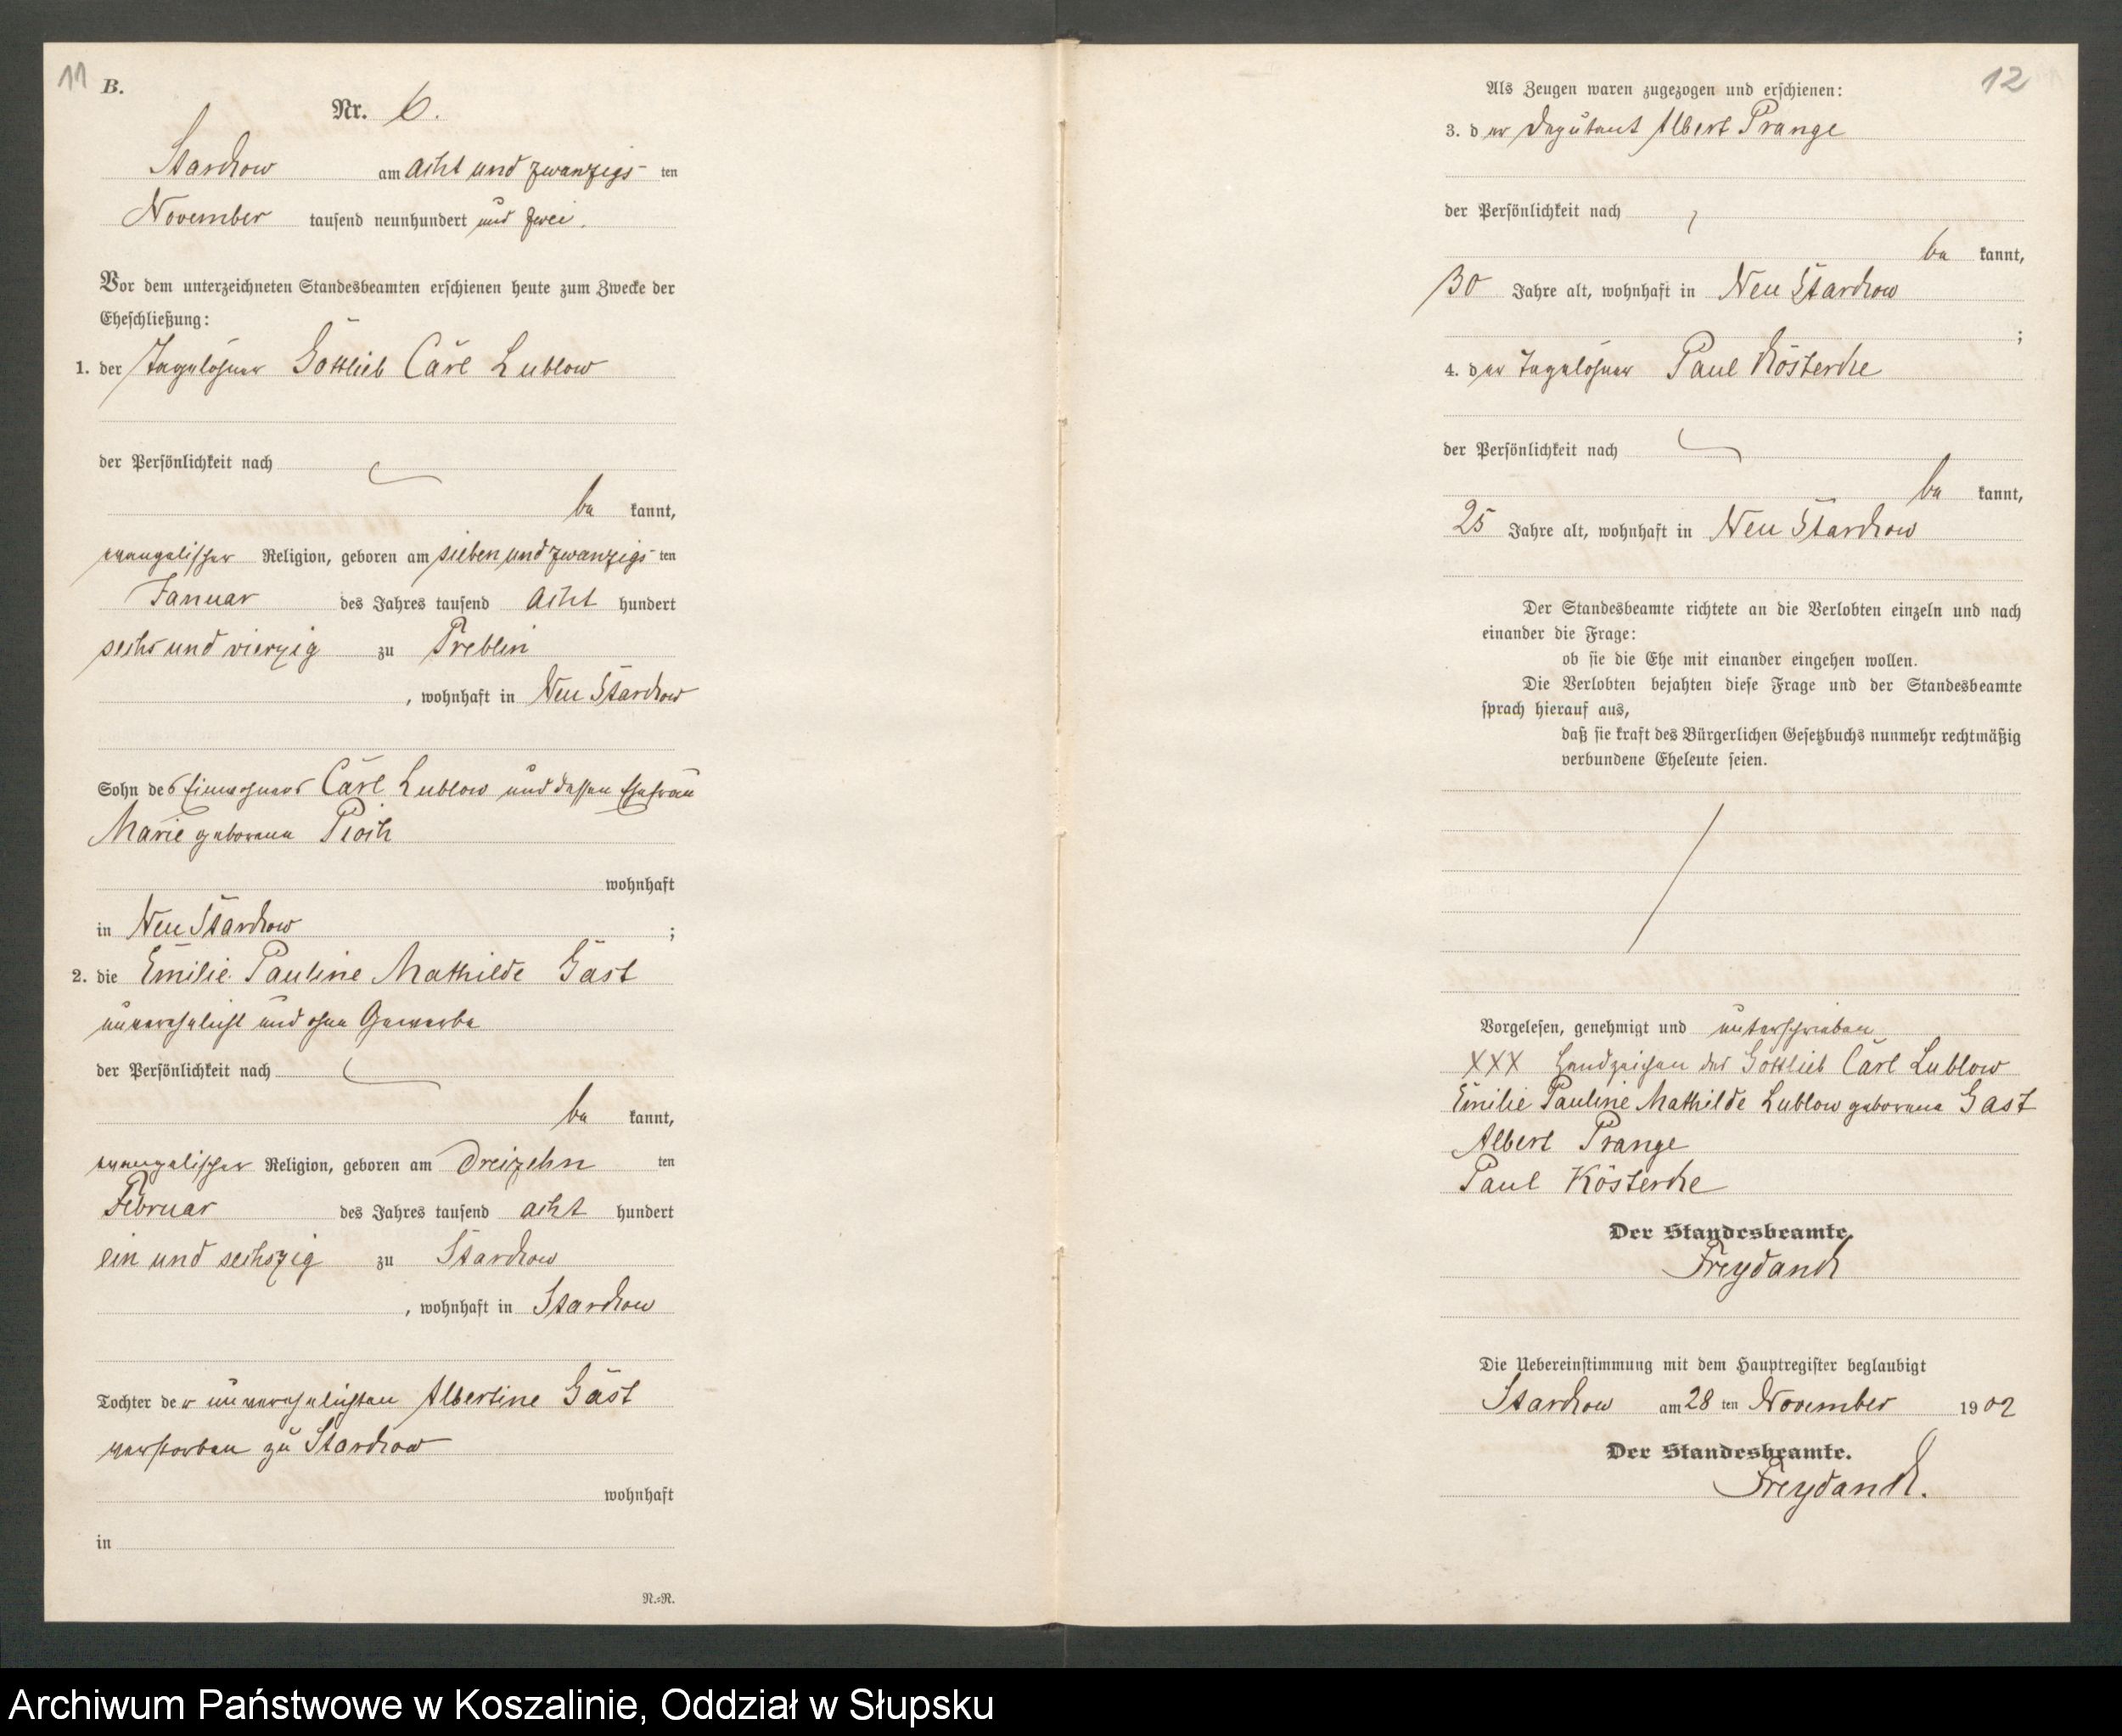 11
B.
Nr. 6.
Starckow am acht und zwanzigs-ten
November tausend neunhundert und zwei.
Vor dem unterzeichneten Standesbeamten erschienen heute zum Zwecke der
Eheschließung:
1. der Tagelöhner Gottlieb Carl Lublow
der Persönlichkeit nach
be kannt,
evangelischer Religion, geboren am sieben und zwanzigs-ten
Januar des Jahres tausend acht hundert
sechs und vierzig zu Treblin
, wohnhaft in Neu Starckow
Sohn des Einwohners Carl Lublow und dessen Ehefrau
Marie geborene Pioch
wohnhaft
in Neu Starckow ;
2. die Emilie Pauline Mathilde Gast
unverehelicht und ohne Gewerbe
der Persönlichkeit nach
be kannt,
evangelischer Religion, geboren am dreizehn ten
Februar des Jahres tausend acht hundert
ein und sechszig zu Starckow
, wohnhaft in Starckow
Tochter der unverehelichten Albertine Gast
verstorben zu Starckow
wohnhaft
in
N.=R.
12
Als Zeugen waren zugezogen und erschienen:
3. der Deputant Albert Prange
der Persönlichkeit nach
be kannt,
30 Jahre alt, wohnhaft in Neu Starckow
;
4. der Tagelöhner Paul Kösterke
der Persönlichkeit nach
be kannt,
25 Jahre alt, wohnhaft in Neu Starckow
Der Standesbeamte richtete an die Verlobten einzeln und nach
einander die Frage:
ob sie die Ehe mit einander eingehen wollen.
Die Verlobten bejahten diese Frage und der Standesbeamte
sprach hierauf aus,
daß sie kraft des Bürgerlichen Gesetzbuchs nunmehr rechtmäßig
verbundene Eheleute seien.
Vorgelesen, genehmigt und unterschrieben
XXX Handzeichen des Gottlieb Carl Lublow
Emilie Pauline Mathilde Lublow geborene Gast
Albert Prange
Paul Kösterke
Der Standesbeamte.
Freydanck
Die Uebereinstimmung mit dem Hauptregister beglaubigt
Starckow am 28 ten November 1902
Der Standesbeamte.
Freydanck.
Archiwum Państwowe w Koszalinie, Oddział w Słupsku